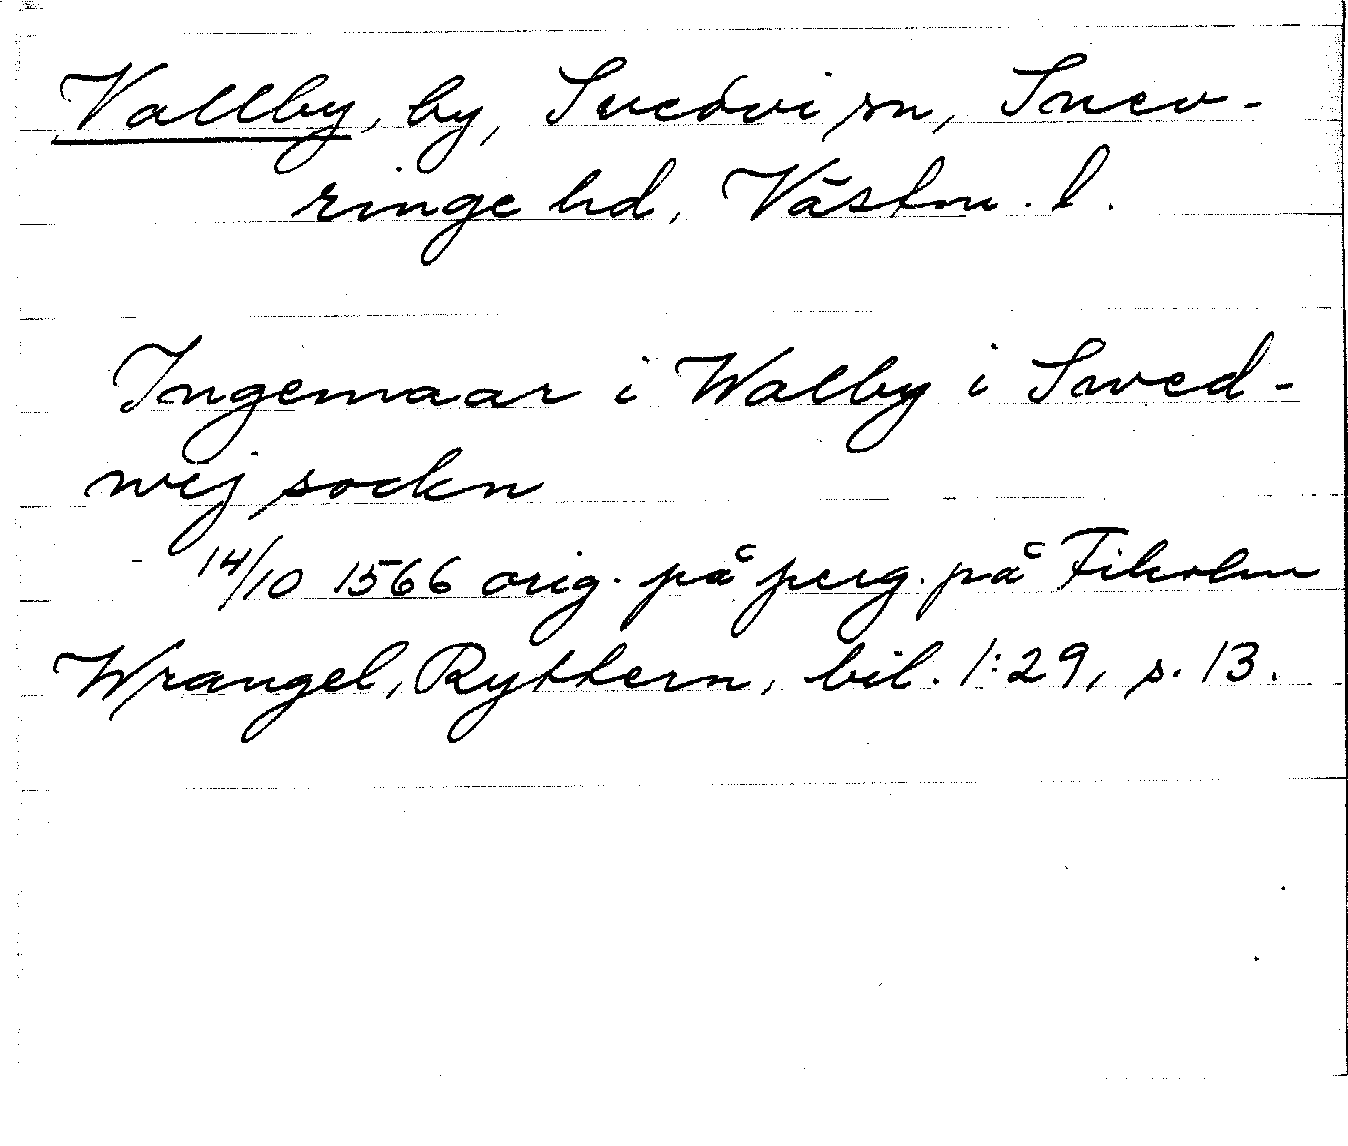 Vallby, by, Svedvi sn, Snev-
ringe hd, Västm. l.
Ingemaar i Walby i Swed-
wij sockn
14/10 1566 orig. på perg. på Fiholm
Wrangel, Ryttern, bil. 1:29, s. 13.